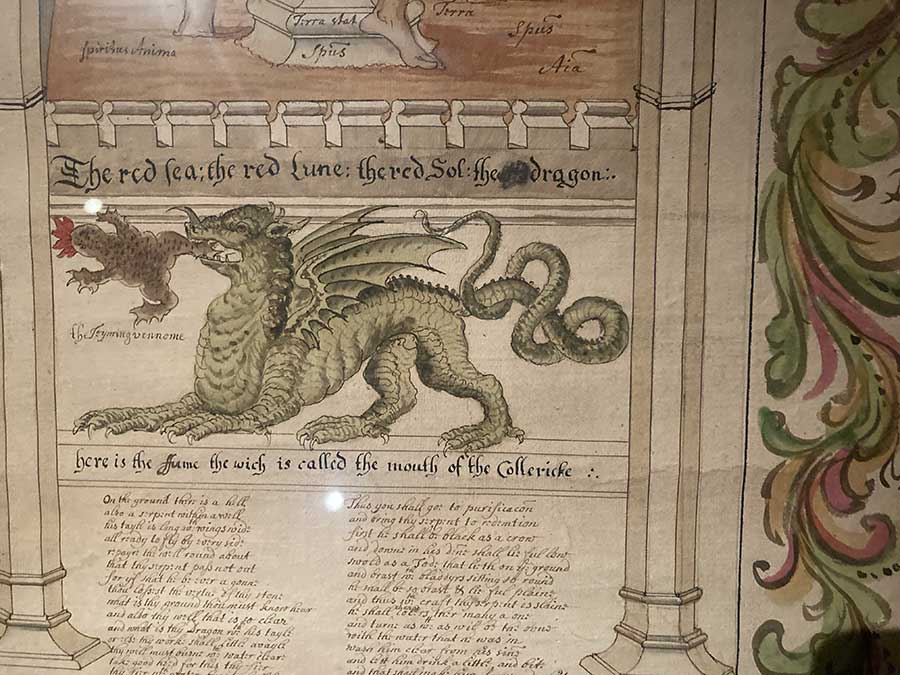 Terra stat
Terra
Spūs
Spiritus Anima
Spūs
Aīa
The red sea; the red Lune: the red Sol: the dragon:.
the Feyming vennome
here is the ffume the wich is called the mouth of the Collericke :.
On the ground ther is a hell
also a serpent within a well
his tayle is long wth wings wide
all ready to fly by every side
repayr the well round about
that thy serpent pass not out
for yf that he be over a gonn
thou losest the vertue of thy stone
what is thy ground thou must know hear
and also thy well that is so clear
and what is thy dragon wth his tayle
or els thy worke shall little avayle
thy well must water clear
take good heed for this thy
Thus you shall goe to purification
and bring thy serpent to redemtion
first he shall be black as a crow
and downe in his den shall lie full low
swold as a Tode that lieth on ye ground
and brast wth bladdyrs sitting so round
he shall be so brast & lie full plaine
and thus wth craft thy serpent is slaine
he shall change colers ther many a one
and turne as white as will be the bone
with the water that he was in
wash him clear from his sinn
and let him drink a little and bite
and that shall make him